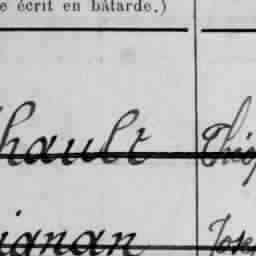 e écrit en bâtarde.)
hault Théo
ignan Jose